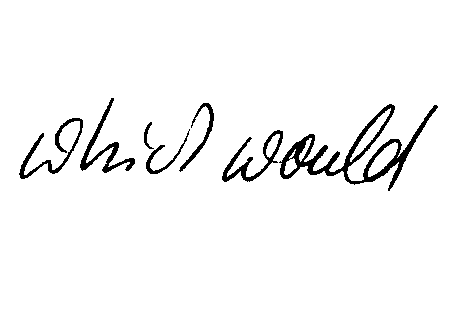 which would